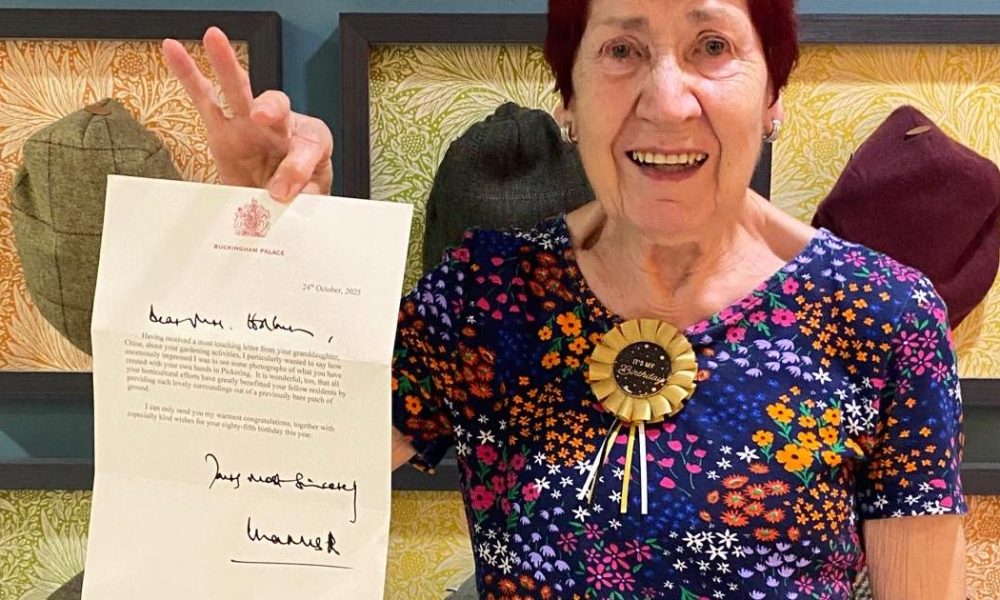 BUCKINGHAM PALACE
24th October, 2025
Dear Mrs.
Having received a most touching letter from your granddaughter,
Chloe, about your gardening activities, I particularly wanted to say how
enormously impressed I was to see some photographs of what you have
created with your own hands in Pickering. It is wonderful, too, that all
your horticultural efforts have greatly benefitted your fellow residents by
providing such lovely surroundings out of a previously bare patch of
ground.
I can only send you my warmest congratulations, together with
especially kind wishes for your eighty-fifth birthday this year.
Yours most sincerely
Charles R
IT'S MY
Birthday